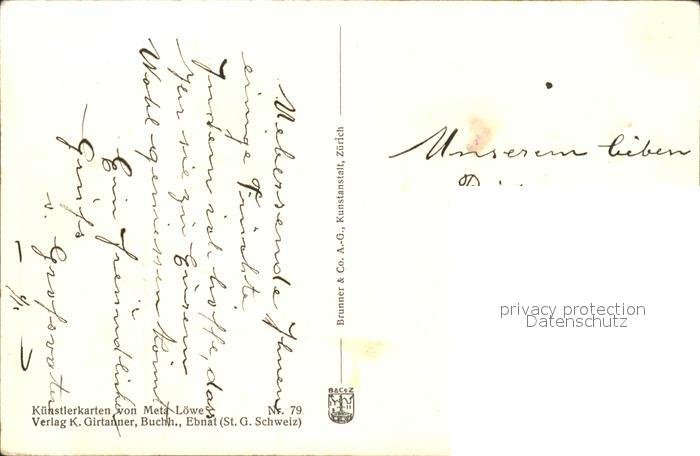 Uebersende Ihnen
einige Früchte
Indem ich hoffe, dass
Ihr sie zu Eurem
Wohl geniessen könnt
Ein freundlicher
Gruss
v. Grossvater
Unserem lieben
privacy protection
Datenschutz
Brunner & Co. A.-G., Kunstanstalt, Zürich
B&CoZ
Künstlerkarten von Meta Löwe Nr. 79
Verlag K. Girtanner, Buchh., Ebnat (St. G. Schweiz)